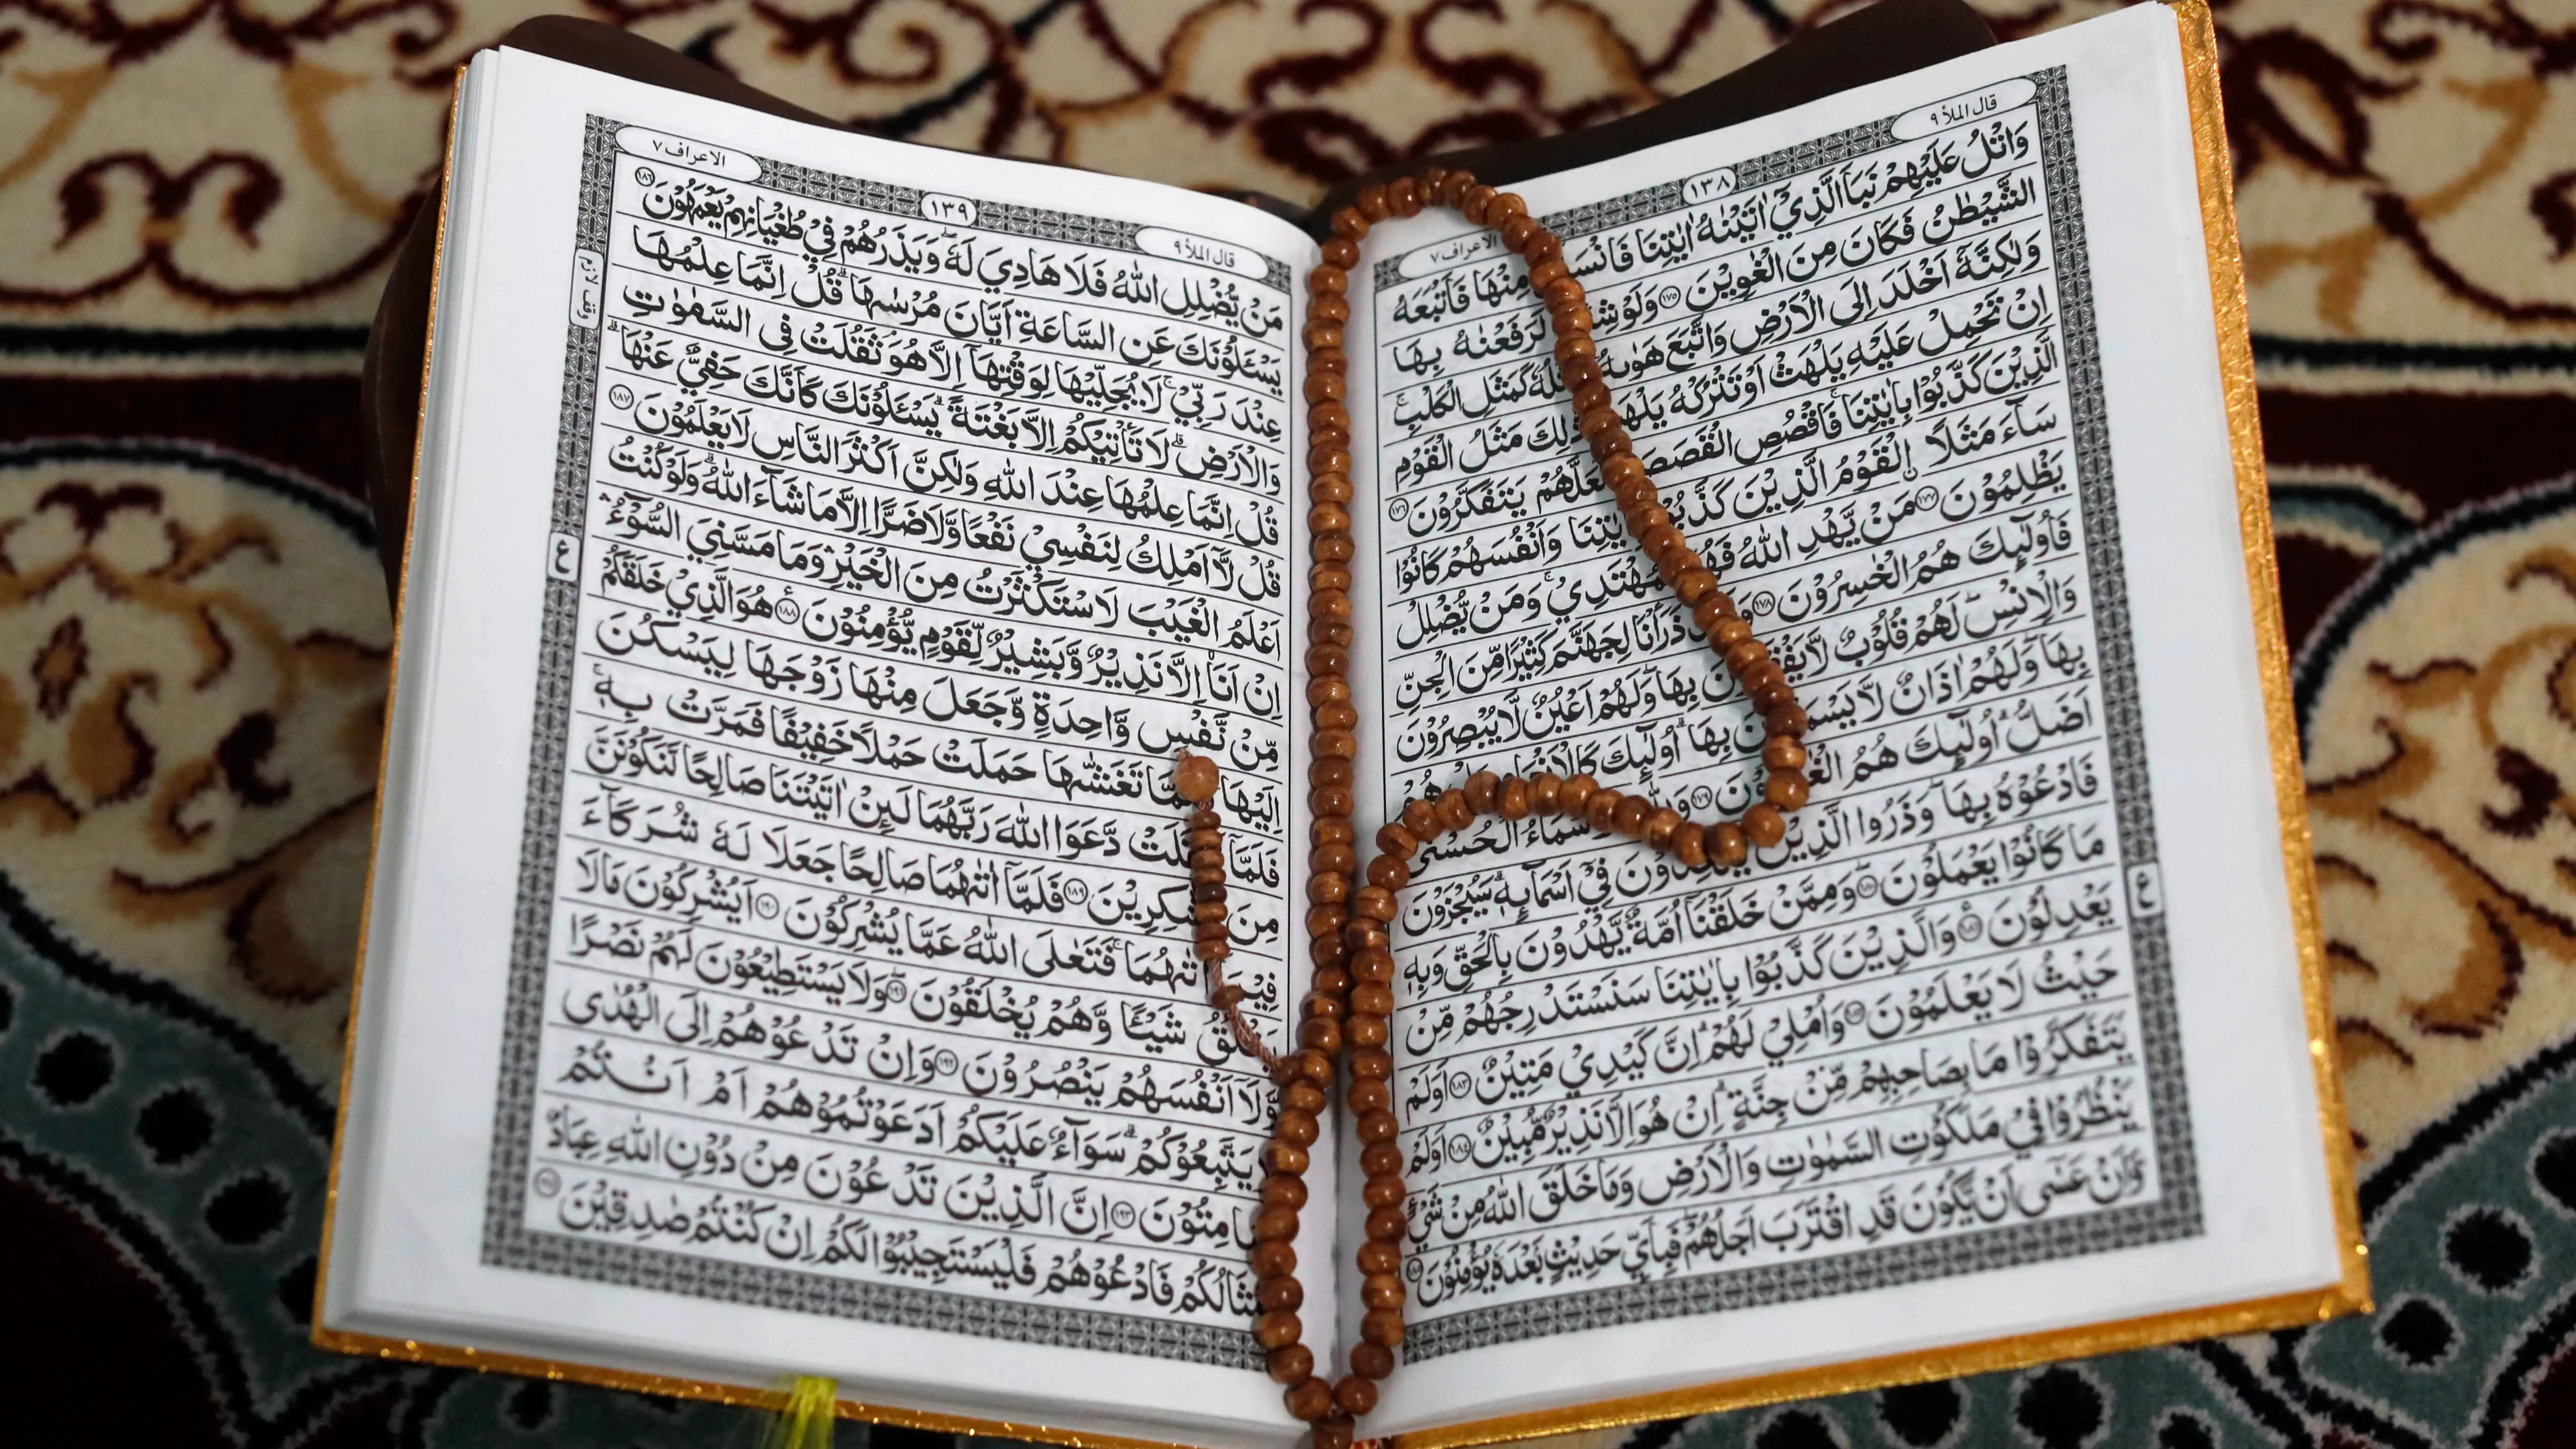 قال الملأ ٩
١٣٨
الاعراف ٧
وَاتْلُ عَلَيْهِمْ نَبَاَ الَّذِيْٓ اٰتَيْنٰهُ اٰيٰتِنَا فَانْسَ مِنْهَا فَاَتْبَعَهُ
الشَّيْطٰنُ فَكَانَ مِنَ الْغٰوِيْنَ ۝١٧٥ وَلَوْ شِئْ لَرَفَعْنٰهُ بِهَا
وَلٰكِنَّهٗٓ اَخْلَدَ اِلَى الْاَرْضِ وَاتَّبَعَ هَوٰىهُ ۚ ثَلُهٗ كَمَثَلِ الْكَلْبِ ۚ
اِنْ تَحْمِلْ عَلَيْهِ يَلْهَثْ اَوْ تَتْرُكْهُ يَلْهَ ذٰلِكَ مَثَلُ الْقَوْمِ
الَّذِيْنَ كَذَّبُوْا بِاٰيٰتِنَا ۚ فَاقْصُصِ الْقَصَصَ لَعَلَّهُمْ يَتَفَكَّرُوْنَ ۝١٧٦
سَآءَ مَثَلًا ۨ الْقَوْمُ الَّذِيْنَ كَذَّبُ يٰتِنَا وَاَنْفُسَهُمْ كَانُوْا
يَظْلِمُوْنَ ۝١٧٧ مَنْ يَّهْدِ اللّٰهُ فَهُ مُهْتَدِيْ ۚ وَمَنْ يُّضْلِلْ
فَاُولٰٓئِكَ هُمُ الْخٰسِرُوْنَ ۝١٧٨ وَ ذَرَاْنَا لِجَهَنَّمَ كَثِيْرًا مِّنَ الْجِنِّ
وَالْاِنْسِ ۖ لَهُمْ قُلُوْبٌ لَّا يَفْقَ نَ بِهَا ۖ وَلَهُمْ اَعْيُنٌ لَّا يُبْصِرُوْنَ
بِهَا ۖ وَلَهُمْ اٰذَانٌ لَّا يَسْمَ نَ بِهَا ۗ اُولٰٓئِكَ كَالْاَنْعَامِ بَلْ هُمْ
اَضَلُّ ۗ اُولٰٓئِكَ هُمُ الْغٰ وْنَ ۝١٧٩ وَلِلّٰ سْمَآءُ الْحُسْنٰى
فَادْعُوْهُ بِهَا ۖ وَذَرُوا الَّذِيْنَ يُلْحِدُوْنَ فِيْٓ اَسْمَآئِهٖ ۗ سَيُجْزَوْنَ
مَا كَانُوْا يَعْمَلُوْنَ ۝١٨٠ وَمِمَّنْ خَلَقْنَآ اُمَّةٌ يَّهْدُوْنَ بِالْحَقِّ وَبِهٖ
يَعْدِلُوْنَ ۝١٨١ وَالَّذِيْنَ كَذَّبُوْا بِاٰيٰتِنَا سَنَسْتَدْرِجُهُمْ مِّنْ
حَيْثُ لَا يَعْلَمُوْنَ ۝١٨٢ وَاُمْلِيْ لَهُمْ ۗ اِنَّ كَيْدِيْ مَتِيْنٌ ۝١٨٣ اَوَلَمْ
يَتَفَكَّرُوْا مَا بِصَاحِبِهِمْ مِّنْ جِنَّةٍ ۗ اِنْ هُوَ اِلَّا نَذِيْرٌ مُّبِيْنٌ ۝١٨٤ اَوَلَمْ
يَنْظُرُوْا فِيْ مَلَكُوْتِ السَّمٰوٰتِ وَالْاَرْضِ وَمَا خَلَقَ اللّٰهُ مِنْ شَيْءٍ
وَّاَنْ عَسٰٓى اَنْ يَّكُوْنَ قَدِ اقْتَرَبَ اَجَلُهُمْ ۖ فَبِاَيِّ حَدِيْثٍۢ بَعْدَهٗ يُؤْمِنُوْنَ ۝١٨٥
ع
قال الملأ ٩
١٣٩
الاعراف ٧
مَنْ يُّضْلِلِ اللّٰهُ فَلَا هَادِيَ لَهٗ ۗ وَيَذَرُهُمْ فِيْ طُغْيَانِهِمْ يَعْمَهُوْنَ ۝١٨٦
يَسْـَٔلُوْنَكَ عَنِ السَّاعَةِ اَيَّانَ مُرْسٰىهَا ۗ قُلْ اِنَّمَا عِلْمُهَا
عِنْدَ رَبِّيْ ۚ لَا يُجَلِّيْهَا لِوَقْتِهَآ اِلَّا هُوَ ۘ ثَقُلَتْ فِى السَّمٰوٰتِ
وَالْاَرْضِ ۗ لَا تَأْتِيْكُمْ اِلَّا بَغْتَةً ۗ يَسْـَٔلُوْنَكَ كَاَنَّكَ حَفِيٌّ عَنْهَا ۗ
قُلْ اِنَّمَا عِلْمُهَا عِنْدَ اللّٰهِ وَلٰكِنَّ اَكْثَرَ النَّاسِ لَا يَعْلَمُوْنَ ۝١٨٧
قُلْ لَّآ اَمْلِكُ لِنَفْسِيْ نَفْعًا وَّلَا ضَرًّا اِلَّا مَا شَآءَ اللّٰهُ ۗ وَلَوْ كُنْتُ
اَعْلَمُ الْغَيْبَ لَاسْتَكْثَرْتُ مِنَ الْخَيْرِ ۛ وَمَا مَسَّنِيَ السُّوْٓءُ ۛ
اِنْ اَنَا اِلَّا نَذِيْرٌ وَّبَشِيْرٌ لِّقَوْمٍ يُّؤْمِنُوْنَ ۝١٨٨ هُوَ الَّذِيْ خَلَقَكُمْ
مِّنْ نَّفْسٍ وَّاحِدَةٍ وَّجَعَلَ مِنْهَا زَوْجَهَا لِيَسْكُنَ
اِلَيْهَا مَّا تَغَشّٰىهَا حَمَلَتْ حَمْلًا خَفِيْفًا فَمَرَّتْ بِهٖ ۚ
فَلَمَّآ لَتْ دَّعَوَا اللّٰهَ رَبَّهُمَا لَئِنْ اٰتَيْتَنَا صَالِحًا لَّنَكُوْنَنَّ
مِنَ شّٰكِرِيْنَ ۝١٨٩ فَلَمَّآ اٰتٰىهُمَا صَالِحًا جَعَلَا لَهٗ شُرَكَآءَ
فِيْمَ تٰىهُمَا ۚ فَتَعٰلَى اللّٰهُ عَمَّا يُشْرِكُوْنَ ۝١٩٠ اَيُشْرِكُوْنَ مَا لَا
يَخْلُقُ شَيْـًٔا وَّهُمْ يُخْلَقُوْنَ ۝١٩١ وَلَا يَسْتَطِيْعُوْنَ لَهُمْ نَصْرًا
وَّلَآ اَنْفُسَهُمْ يَنْصُرُوْنَ ۝١٩٢ وَاِنْ تَدْعُوْهُمْ اِلَى الْهُدٰى
لَا يَتَّبِعُوْكُمْ ۗ سَوَآءٌ عَلَيْكُمْ اَدَعَوْتُمُوْهُمْ اَمْ اَنْتُمْ
صَامِتُوْنَ ۝١٩٣ اِنَّ الَّذِيْنَ تَدْعُوْنَ مِنْ دُوْنِ اللّٰهِ عِبَادٌ
مْثَالُكُمْ فَادْعُوْهُمْ فَلْيَسْتَجِيْبُوْا لَكُمْ اِنْ كُنْتُمْ صٰدِقِيْنَ ۝١٩٤
وقف لازم
ع